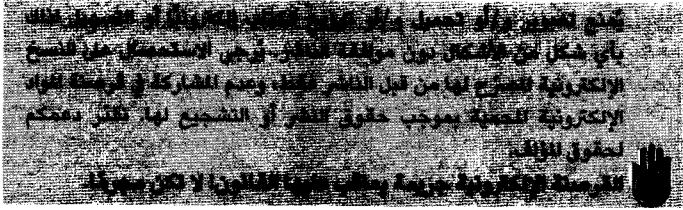 يُمنع تصوير و/أو تحميل و/أو توزيع الكتاب إلكترونيًا أو التسهيل لذلك
بأي شكل من الأشكال دون موافقة الناشر. يُرجى الاستحصال على النسخ
الإلكترونية المصرّح لها من قبل الناشر فقط، وعدم المشاركة في قرصنة المواد
الإلكترونية المحمية بموجب حقوق النشر أو التشجيع لها. نقدّر دعمكم
لحقوق المؤلف.
القرصنة الإلكترونية جريمة يعاقب عليها القانون! لا تكن سروقًا.